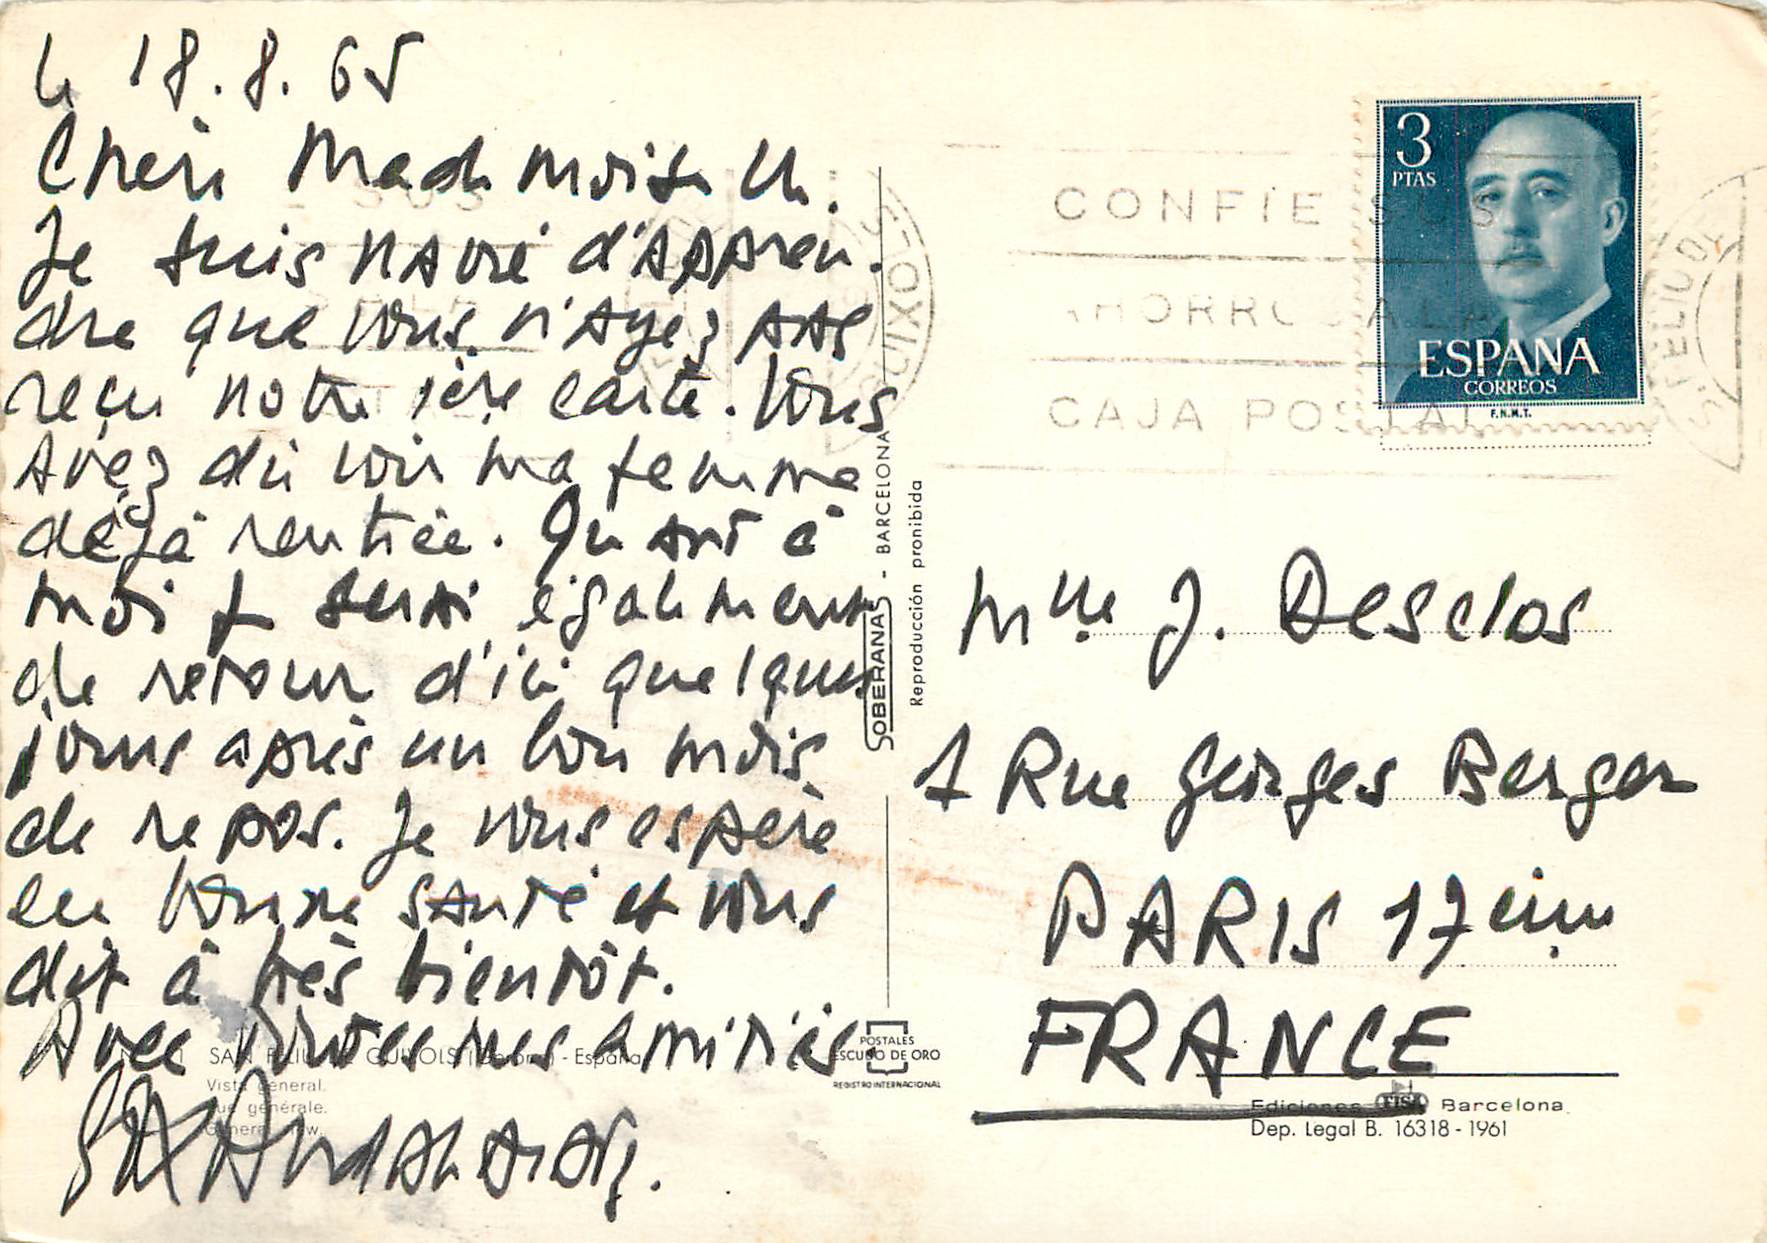 le 18.8.65
Chère Mademoiselle.
Je suis navré d'appren-
dre que vous n'ayez pas
reçu notre 1ère carte. Vous
avez dû voir ma femme
déjà rentrée. Quant à
moi je serai également
de retour d'ici quelques
jours après un bon mois
de repos. Je vous espère
en bonne santé et vous
dit à très bientôt.
Avec toutes mes amitiés.
SAN FELIU DE GUIXOLS (Gerona) - España
Vista general.
Vue générale.
General view.
SOBERANAS - BARCELONA
Reproducción prohibida
POSTALES
ESCUDO DE ORO
REGISTRO INTERNACIONAL
3
PTAS
ESPAÑA
CORREOS
F.N.M.T.
CONFIE SUS
AHORROS A LA
CAJA POSTAL
Mlle J. Desclos
1 Rue Georges Berger
PARIS 17ème
FRANCE
Ediciones FISA Barcelona
Dep. Legal B. 16318-1961